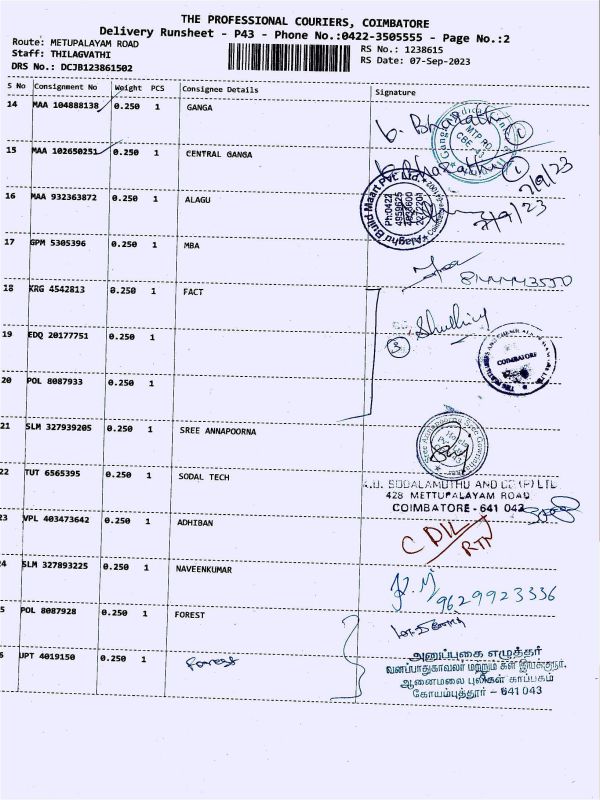 THE PROFESSIONAL COURIERS, COIMBATORE
Delivery Runsheet - P43 - Phone No.:0422-3505555 - Page No.:2
Route: METUPALAYAM ROAD
Staff: THILAGVATHI
DRS No.: DCJB123861502
RS No.: 1238615
RS Date: 07-Sep-2023
S No Consignment No Weight PCS Consignee Details Signature
14 MAA 104888138 0.250 1 GANGA
15 MAA 102650251 0.250 1 CENTRAL GANGA
7/9/23
16 MAA 932363872 0.250 1 ALAGU
7/9/23
Alaghu Build Maart Pvt. Ltd.
Ph:0422
4959625
17 GPM 5305396 0.250 1 MBA
18 KRG 4542813 0.250 1 FACT
19 EDQ 20177751 0.250 1
3
COIMBATORE
20 POL 8087933 0.250 1
21 SLM 327939205 0.250 1 SREE ANNAPOORNA
22 TUT 6565395 0.250 1 SODAL TECH
SODALAMUTHU AND CO (P) LTD
428 METTUPALAYAM ROAD
COIMBATORE - 641 043
23 VPL 403473642 0.250 1 ADHIBAN
RTN
24 SLM 327893225 0.250 1 NAVEENKUMAR
9629923336
5 POL 8087928 0.250 1 FOREST
6 UPT 4019150 0.250 1 Forest
அனுப்புகை எழுத்தர்
வனப்பாதுகாவலர் மற்றும் கள இயக்குநர்,
ஆனைமலை புலிகள் காப்பகம்
கோயம்புத்தூர் - 641 043